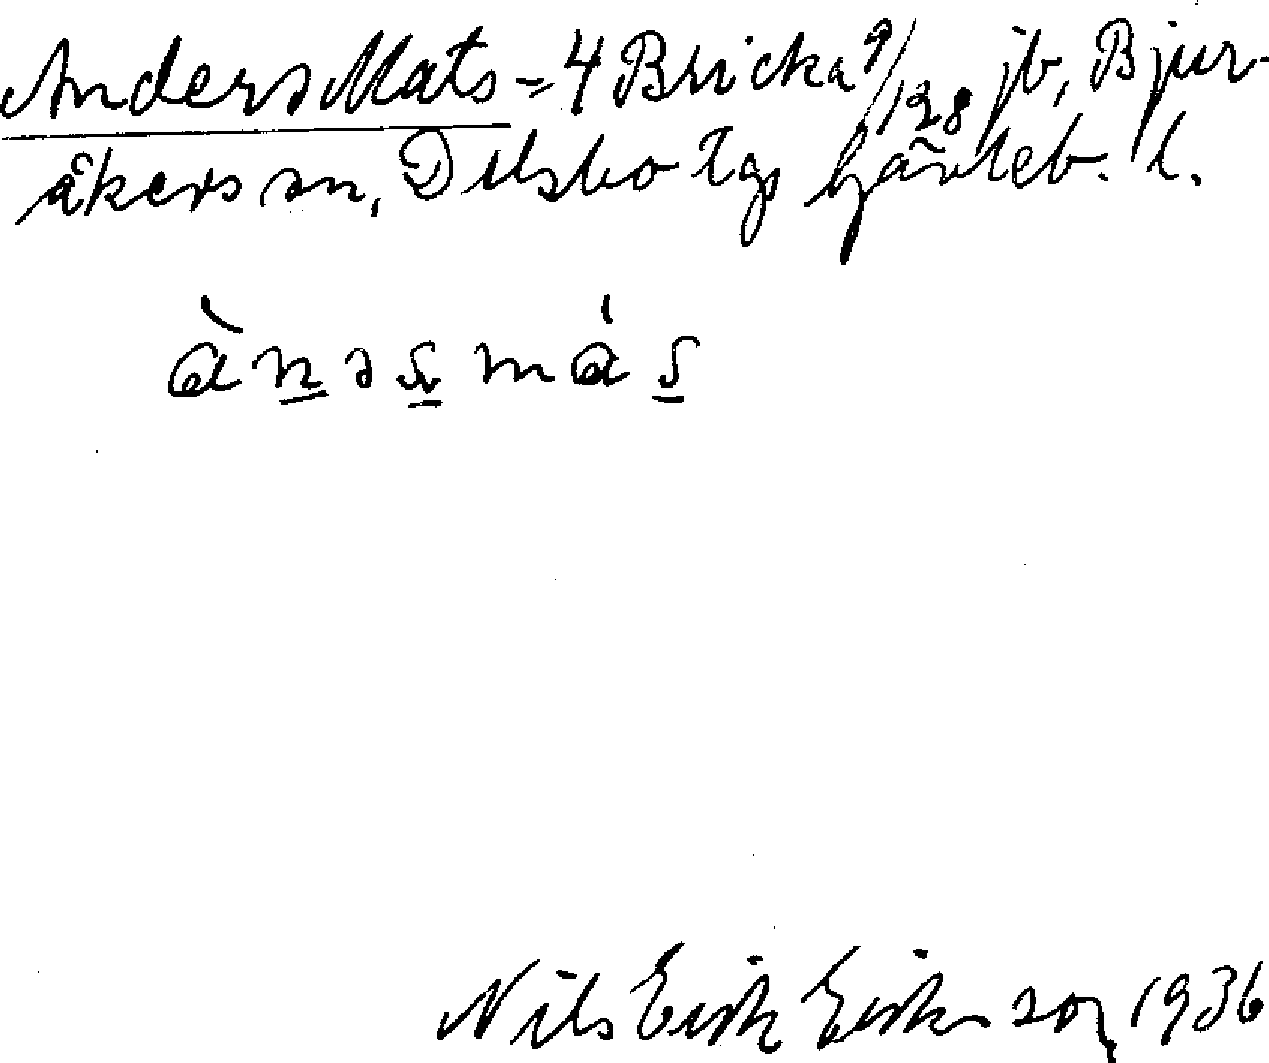 Anders Mats = 4 Bricka 9/128 jb, Bjur-
åkers sn, Delsbo tg, Gävleb. l.
ànəs más
Nils Erik Eriksson 1936